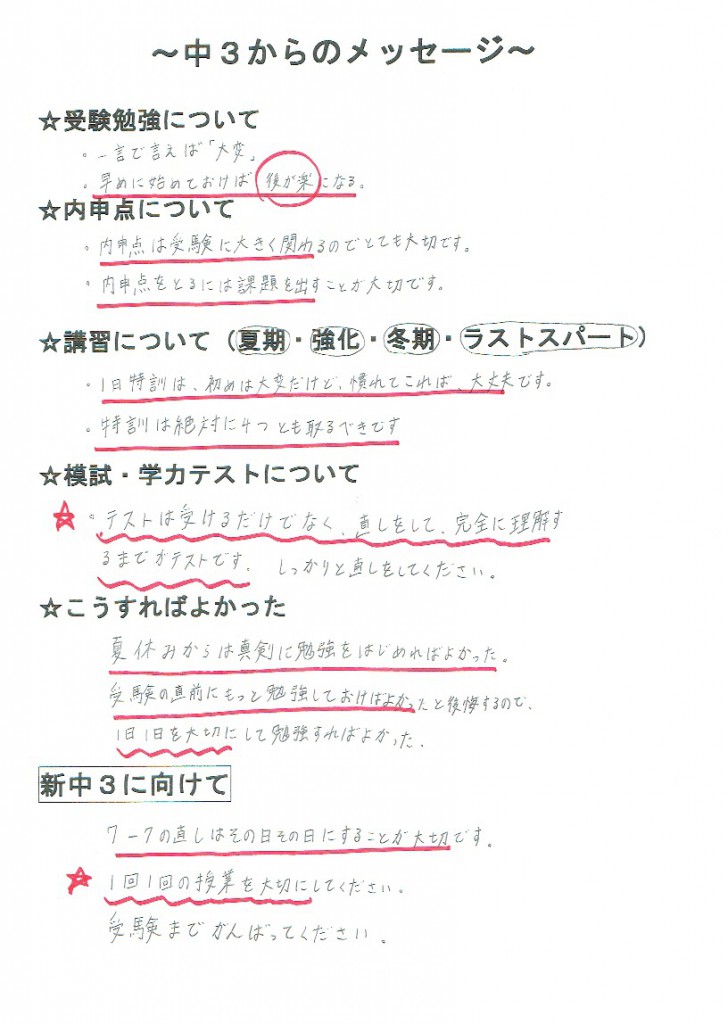 ～中３からのメッセージ～
☆受験勉強について
・一言で言えば「大変」
・早めに始めておけば後が楽になる。
☆内申点について
・内申点は受験に大きく関わるのでとても大切です。
・内申点をとるには課題を出すことが大切です。
☆講習について（夏期・強化・冬期・ラストスパート）
・1日特訓は、初めは大変だけど、慣れてこれば、大丈夫です。
・特訓は絶対に4つとも取るべきです
☆模試・学力テストについて
・テストは受けるだけでなく、直しをして、完全に理解す
るまでがテストです。しっかりと直しをしてください。
☆こうすればよかった
夏休みからは真剣に勉強をはじめればよかった。
受験の直前にもっと勉強しておけばよかったと後悔するので、
1日1日を大切にして勉強すればよかった.
新中３に向けて
ワークの直しはその日その日にすることが大切です。
1回1回の授業を大切にしてください。
受験までがんばってください。